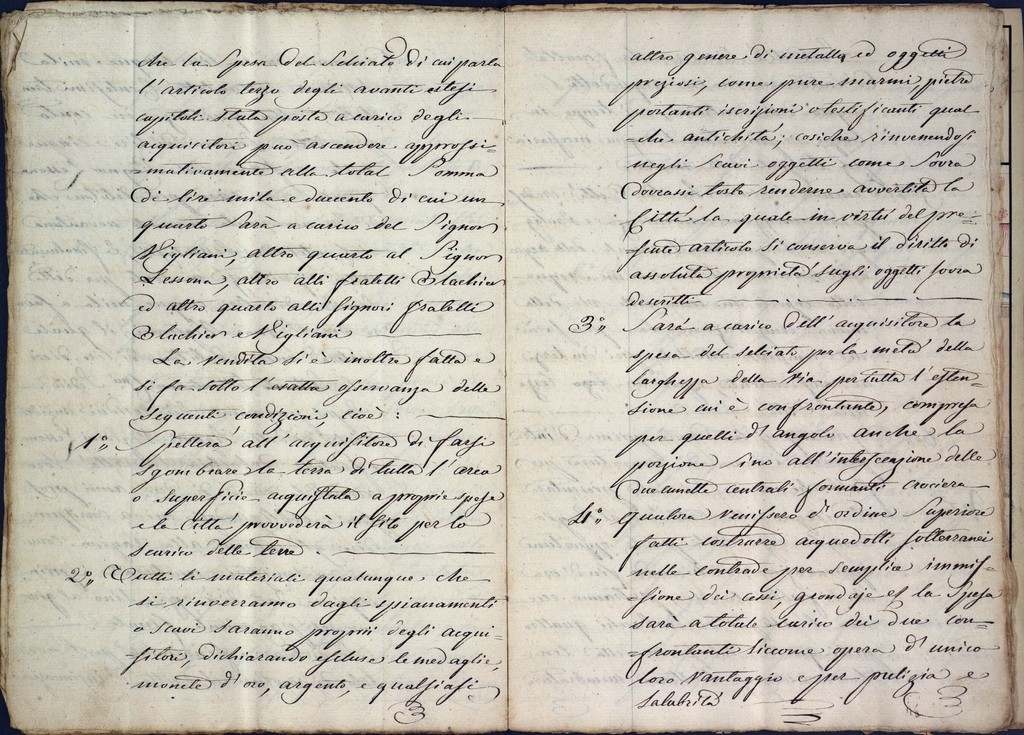 che la Spesa del Selciato di cui parla
l'articolo terzo degli avanti estesi
capitoli stata posta a carico degli
acquisitori può ascendere approssi=
=mativamente alla total Somma
di lire mila e duecento di cui un
quarto Sarà a carico del Signor
Vigliani, altro quarto al Signor
Lessona, altro alli fratelli Blachier
ed altro quarto alli Signori fratelli
Blachier e Vigliani
La vendita si è inoltre fatta e
si fa sotto l'esatta osservanza delle
seguenti condizioni, cioè:
1° Spetterà all'acquisitore di farsi
Sgombrare la terra di tutta l'area
o superficie acquistata a proprie spese
e la Città provvederà il sito per lo
scarico delle terre.
2° Tutti li materiali qualunque che
si rinverranno dagli spianamenti
o scavi saranno proprii degli acqui=
sitori, dichiarando escluse le medaglie,
monete d'oro, argento, e qualsiasi
altro genere di metallo ed oggetti
preziosi, come pure marmi, pietre
portanti iscrizioni o testificanti qual
=che antichità; cosiche rinvenendosi
negli Scavi oggetti come Sovra
dovrassi tosto renderne avvertita la
Città la quale in virtù del pre=
=sente articolo Si conserva il diritto di
assoluta proprietà sugli oggetti sovra
descritti
3° Sarà a carico dell'acquisitore la
spesa del selciato per la metà della
larghezza della via per tutta l'esten=
sione cui è confrontante, compresa
per quelli d'angolo anche la
porzione Sino all'intersecazione delle
due cunette centrali formanti crociera
4° Qualora venissero d'ordine Superiore
fatti costrurre acquedotti sotterranei
nelle contrade per semplice immis=
=sione dei cessi, grondaje et la Spesa
sarà a totale carico dei due con=
=frontanti Siccome opera d'unico
loro Vantaggio e per pulizia e
Salubrità